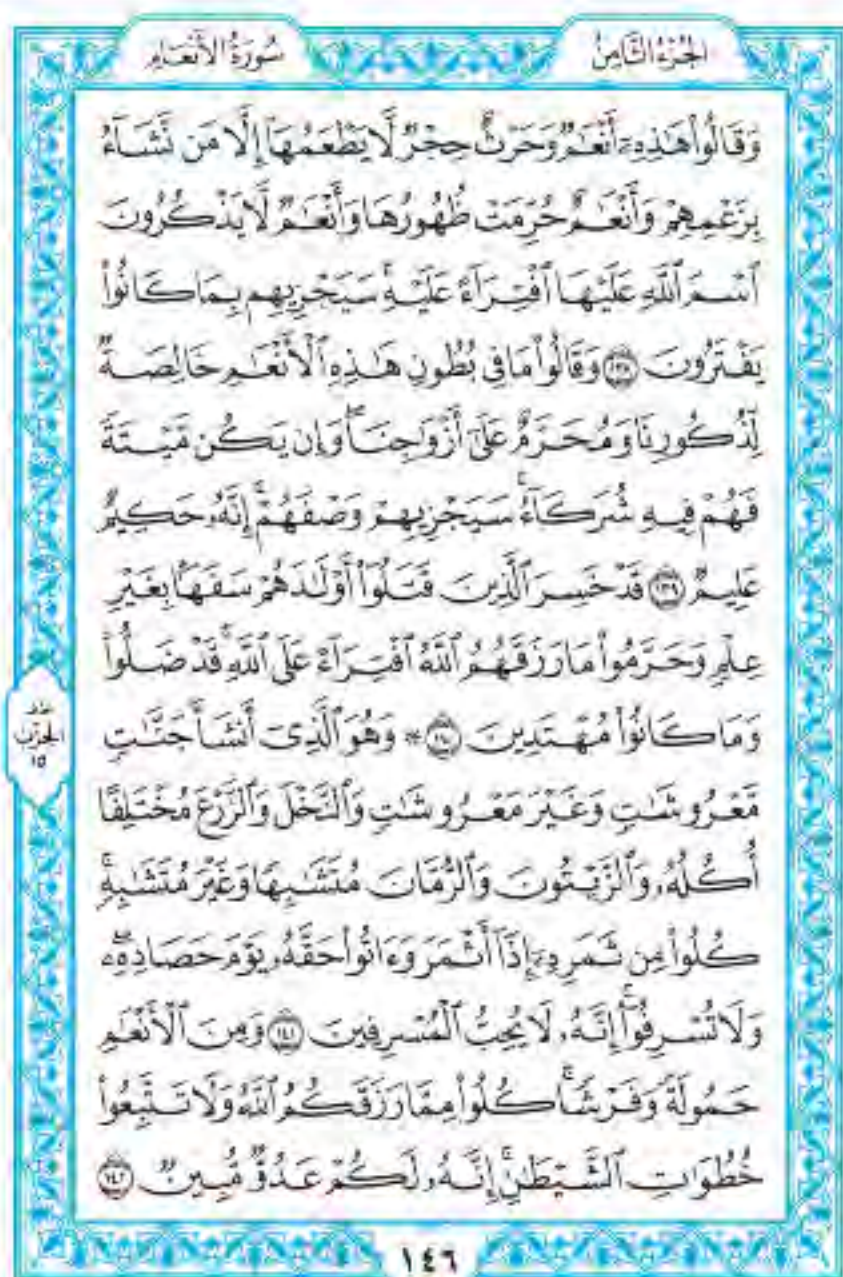 الجُزْءُ الثَّامِنُ
سُورَةُ الأَنْعَامِ
وَقَالُواْ هَٰذِهِۦٓ أَنْعَٰمٌ وَحَرْثٌ حِجْرٌ لَّا يَطْعَمُهَآ إِلَّا مَن نَّشَآءُ
بِزَعْمِهِمْ وَأَنْعَٰمٌ حُرِّمَتْ ظُهُورُهَا وَأَنْعَٰمٌ لَّا يَذْكُرُونَ
ٱسْمَ ٱللَّهِ عَلَيْهَا ٱفْتِرَآءً عَلَيْهِۚ سَيَجْزِيهِم بِمَا كَانُواْ
يَفْتَرُونَ ١٣٨ وَقَالُواْ مَا فِى بُطُونِ هَٰذِهِ ٱلْأَنْعَٰمِ خَالِصَةٌ
لِّذُكُورِنَا وَمُحَرَّمٌ عَلَىٰٓ أَزْوَٰجِنَاۖ وَإِن يَكُن مَّيْتَةً
فَهُمْ فِيهِ شُرَكَآءُۚ سَيَجْزِيهِمْ وَصْفَهُمْۚ إِنَّهُۥ حَكِيمٌ
عَلِيمٌ ١٣٩ قَدْ خَسِرَ ٱلَّذِينَ قَتَلُوٓاْ أَوْلَٰدَهُمْ سَفَهًۢا بِغَيْرِ
عِلْمٍ وَحَرَّمُواْ مَا رَزَقَهُمُ ٱللَّهُ ٱفْتِرَآءً عَلَى ٱللَّهِۚ قَدْ ضَلُّواْ
وَمَا كَانُواْ مُهْتَدِينَ ١٤٠ ۞ وَهُوَ ٱلَّذِىٓ أَنشَأَ جَنَّٰتٍ
مَّعْرُوشَٰتٍ وَغَيْرَ مَعْرُوشَٰتٍ وَٱلنَّخْلَ وَٱلزَّرْعَ مُخْتَلِفًا
أُكُلُهُۥ وَٱلزَّيْتُونَ وَٱلرُّمَّانَ مُتَشَٰبِهًا وَغَيْرَ مُتَشَٰبِهٍۚ
كُلُواْ مِن ثَمَرِهِۦٓ إِذَآ أَثْمَرَ وَءَاتُواْ حَقَّهُۥ يَوْمَ حَصَادِهِۦۖ
وَلَا تُسْرِفُوٓاْۚ إِنَّهُۥ لَا يُحِبُّ ٱلْمُسْرِفِينَ ١٤١ وَمِنَ ٱلْأَنْعَٰمِ
حَمُولَةً وَفَرْشًاۚ كُلُواْ مِمَّا رَزَقَكُمُ ٱللَّهُ وَلَا تَتَّبِعُواْ
خُطُوَٰتِ ٱلشَّيْطَٰنِۚ إِنَّهُۥ لَكُمْ عَدُوٌّ مُّبِينٌ ١٤٢
الحزب
١٥
١٤٦